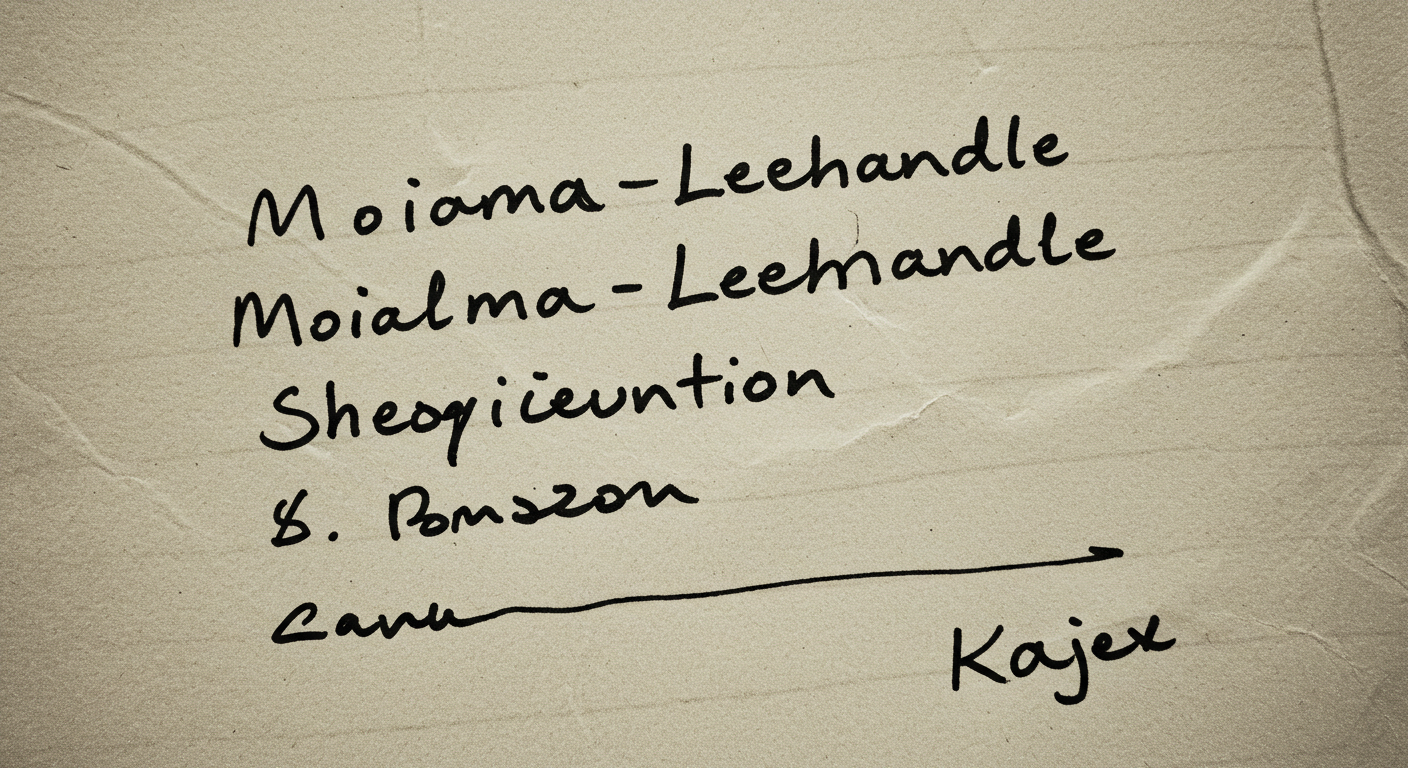 Moiama - Leehandle
Moialma - Leehandle
Sheoqiieuntion
8. Bomszon
Canu
Kajex